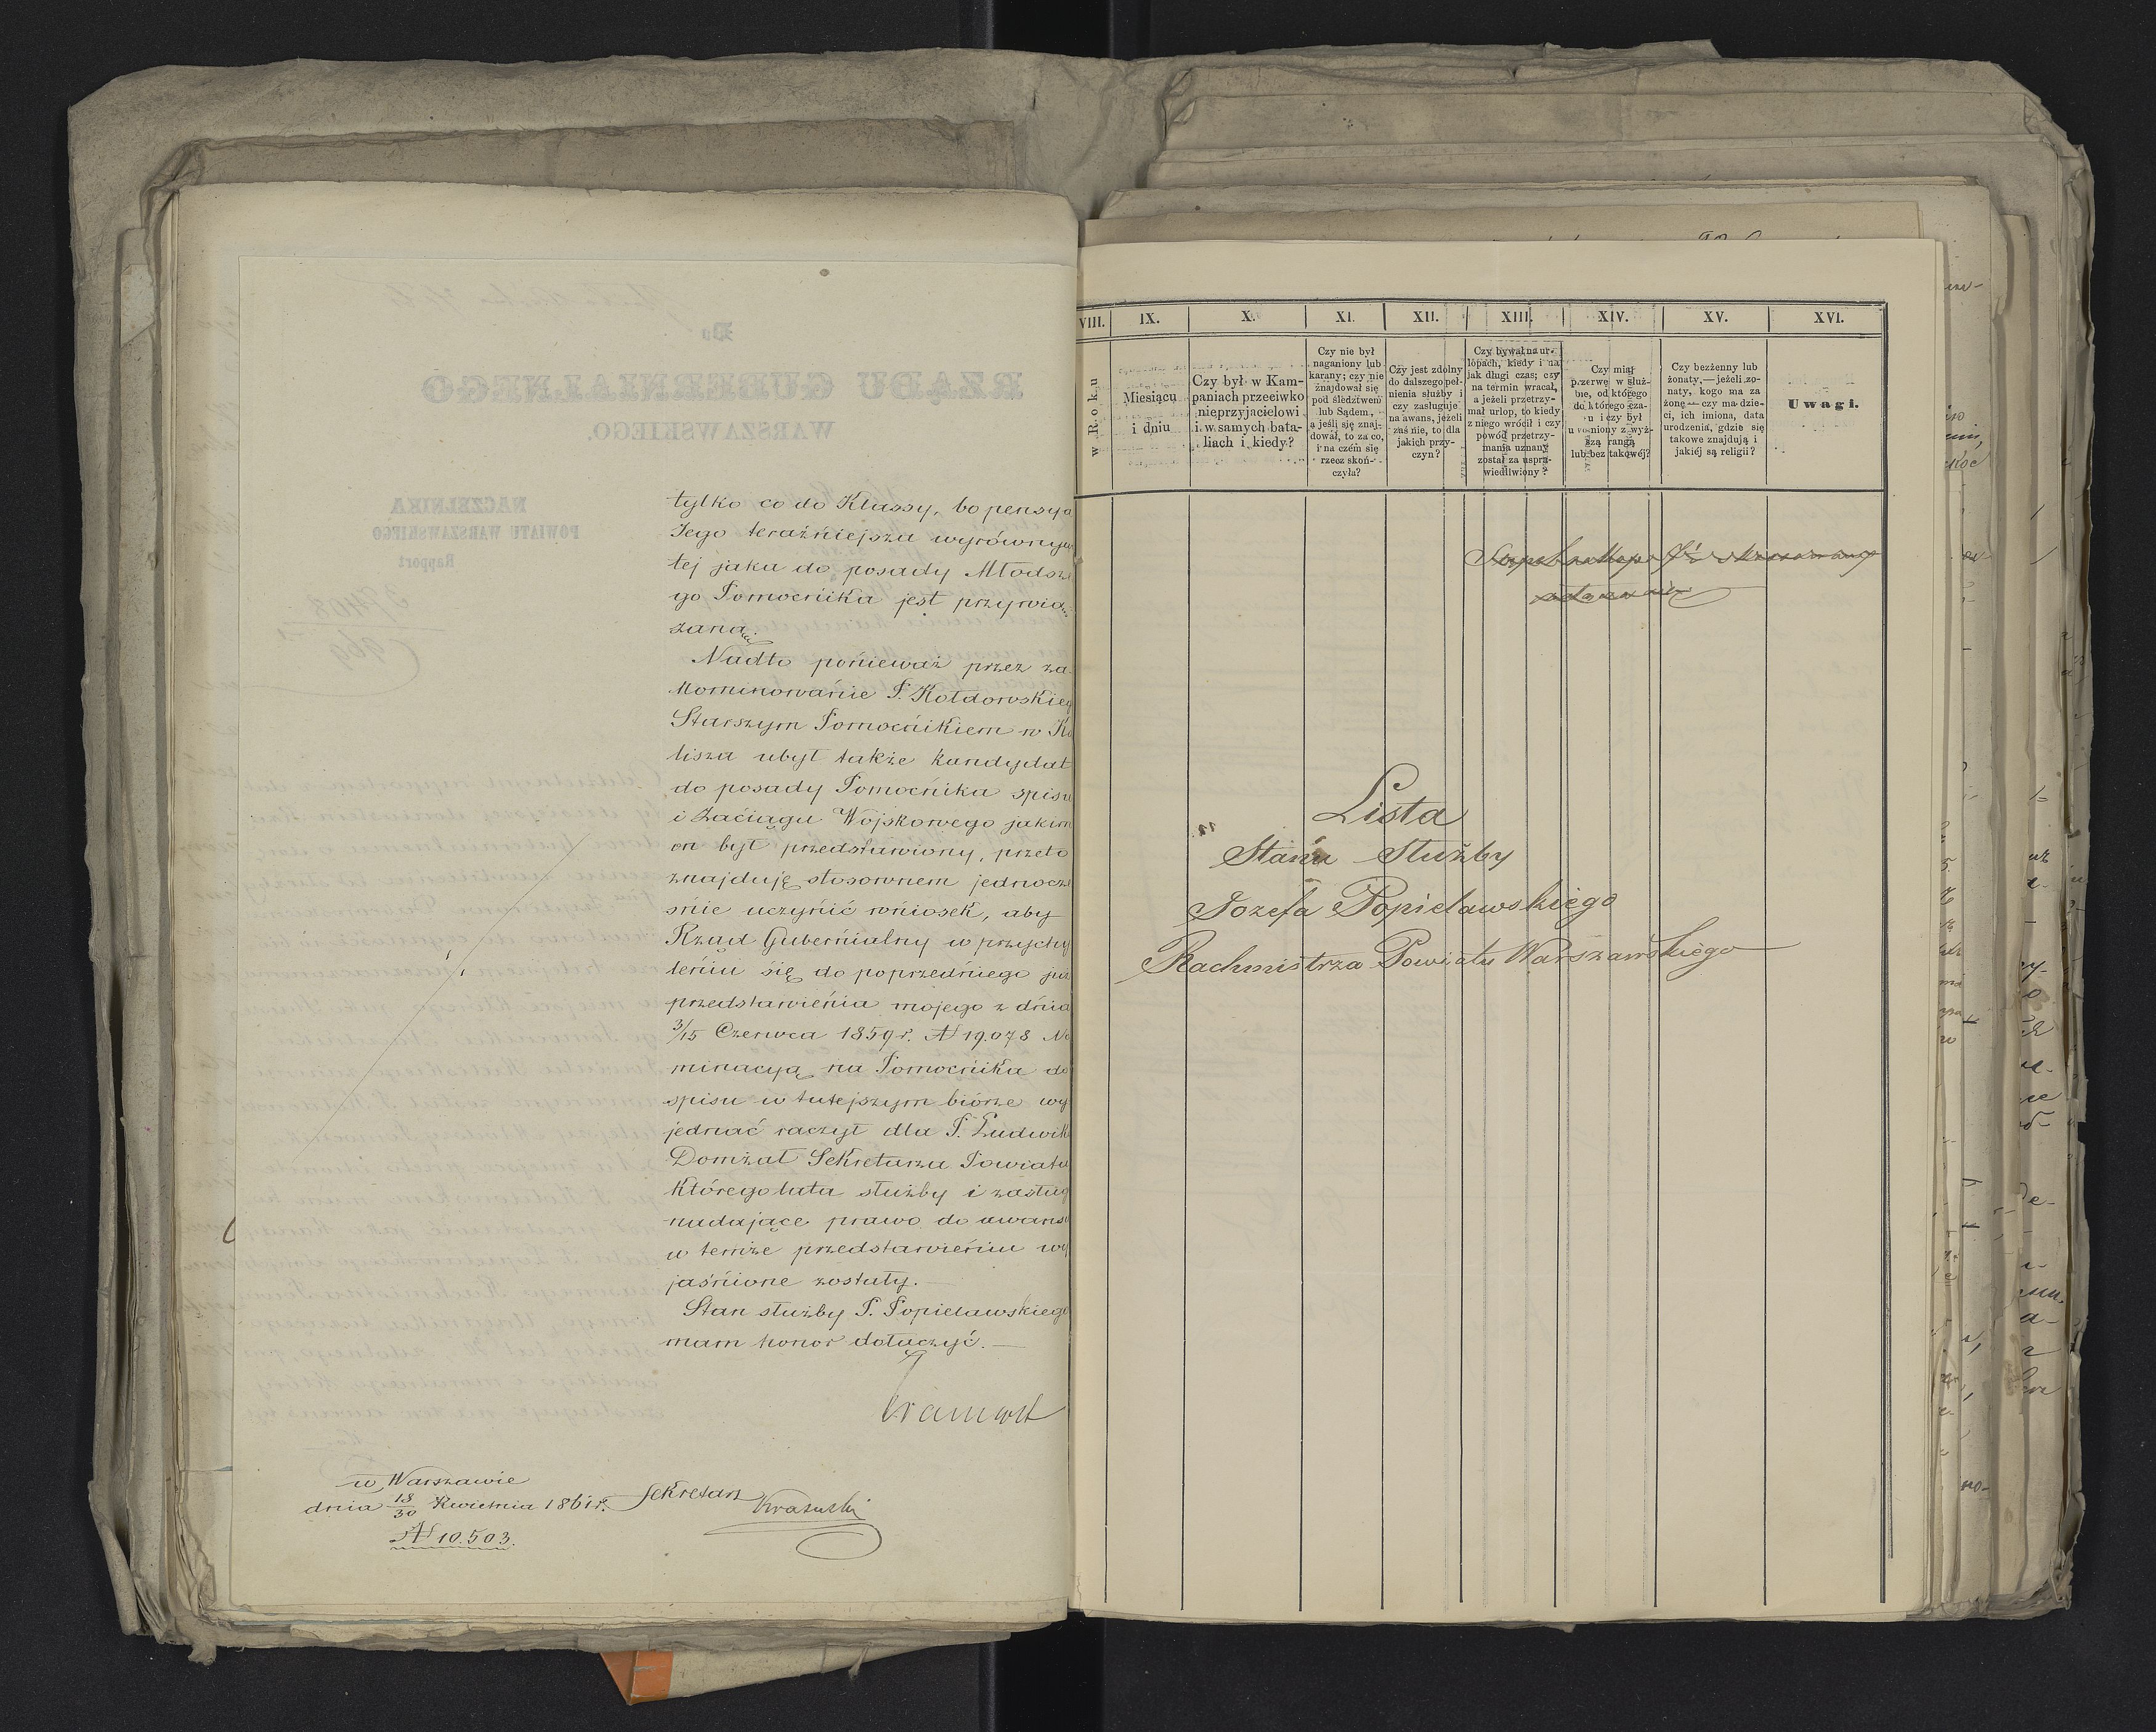 tylko co do Klassy, bo pensya
Jego teraźniejsza wyrównywa
tej jaka do posady Młodsze
go Pomocnika jest przywią
zaną.
Nadto ponieważ przez za
nominowanie P. Kołdowskieg
Starszym Pomocnikiem w Ka
lisza ubył także kandydat
do posady Pomocnika spisu
i Zaciągu Wojskowego jakim
on był przedstawiony, przeto
znajduję stosownem jednocze
śnie uczynić wniosek, aby
Rząd Gubernialny w przychy
leniu się do poprzedniego już
przedstawienia mojego z dnia
3/15 Czerwca 1859 r. N 19.078 No
minacyą na Pomocnika do
spisu w tutejszym biórze wy
jednać raczył dla P. Ludwik
Domżał Sekretarza Powiatu
którego lata służby i zasług
nadające prawo do awansu
w temże przedstawieniu wy
jaśnione zostały.
Stan służby P. Popielawskiego
mam honor dołączyć.
w Warszawie
dnia 18/30 Kwietnia 1861 r.
N 10.503.
Sekretarz
Krasuski
VIII. IX. X. XI. XII. XIII. XIV. XV. XVI.
w Roku
Miesiącu
i dniu
Czy był w Kam-
paniach przeciwko
nieprzyjacielowi
i w samych bata-
liach i kiedy?
Czy nie był
naganiony lub
karany; czy nie
znajdował się
pod śledztwem
lub Sądem,
a jeśli się znaj-
dował, to za co,
i na czém się
rzecz skoń-
czyła?
Czy jest zdolny
do dalszego peł-
nienia służby i
czy zasługuje
na awans, jeżeli
zaś nie, to dla
jakich przy-
czyn?
Czy bywał na ur-
lopach, kiedy i na
jak długi czas; czy
na termin wracał,
a jeżeli przetrzy-
mał urlop, to kiedy
z niego wrócił i czy
powód przetrzy-
mania uznany
został za uspra-
wiedliwiony?
Czy miał
przerwę w służ-
bie, od którego
do którego cza-
su i czy był
uwolniony z wyż-
szą rangą
lub bez takowéj?
Czy bezżenny lub
żonaty,—jeżeli żo-
naty, kogo ma za
żonę—czy ma dzie-
ci, ich imiona, data
urodzenia, gdzie się
takowe znajdują i
jakiéj są religii?
Uwagi.
Lista
Stanu Służby
Józefa Popielawskiego
Rachmistrza Powiatu Warszawskiego